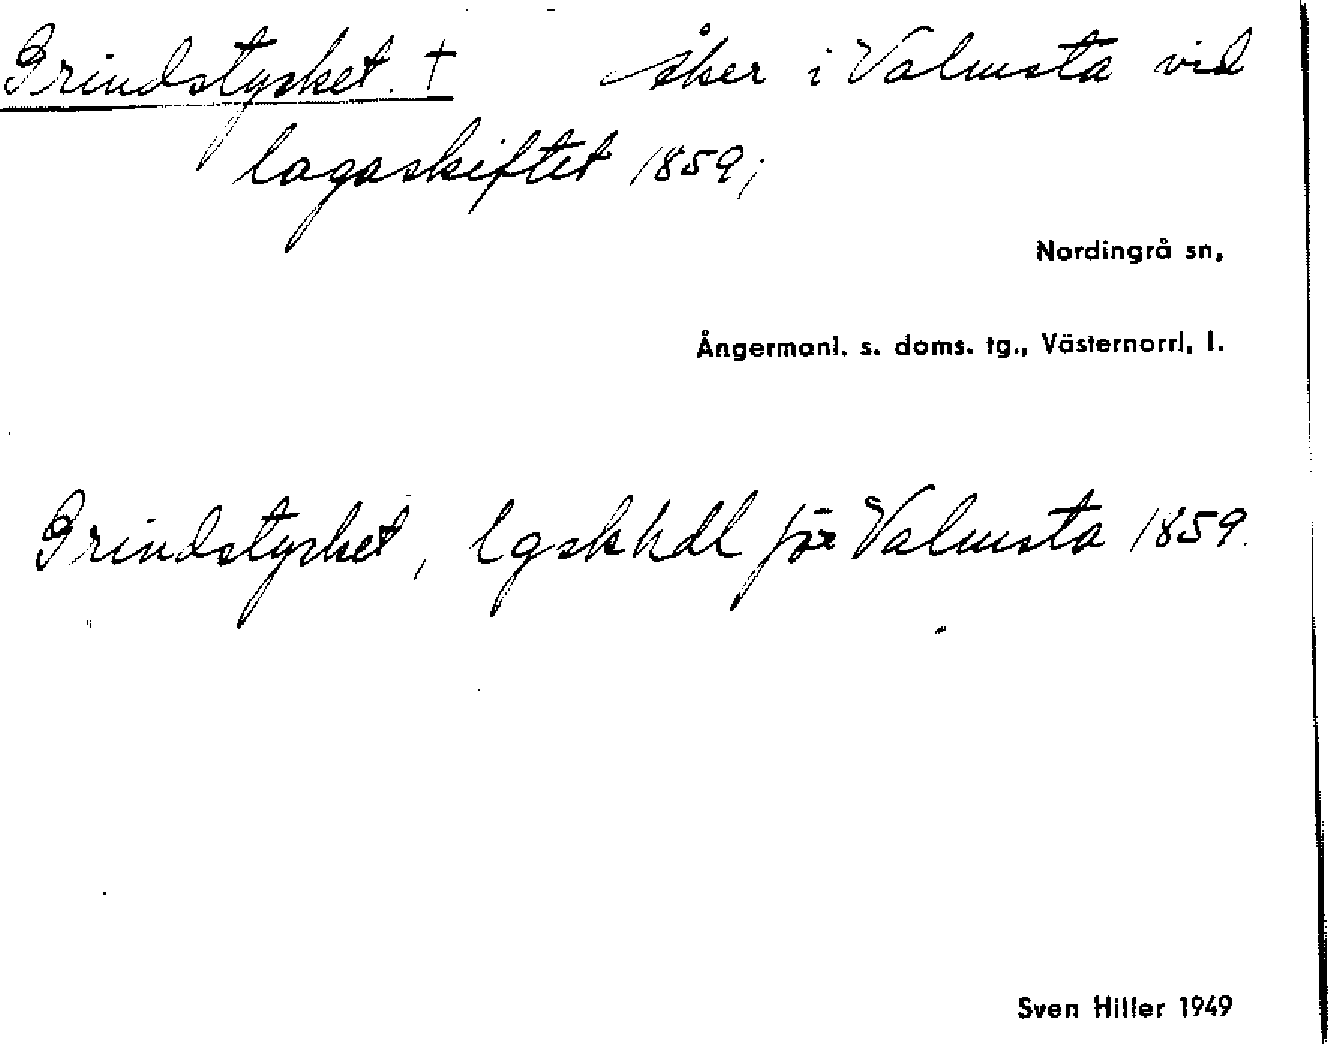 Grindstycket. † åker i Valmsta vid
lagaskiftet 1859;
Nordingrå sn,
Ångermanl. s. doms. tg., Västernorrl. l.
Grindstycket, Lgskhdl för Valmsta 1859.
Sven Hiller 1949